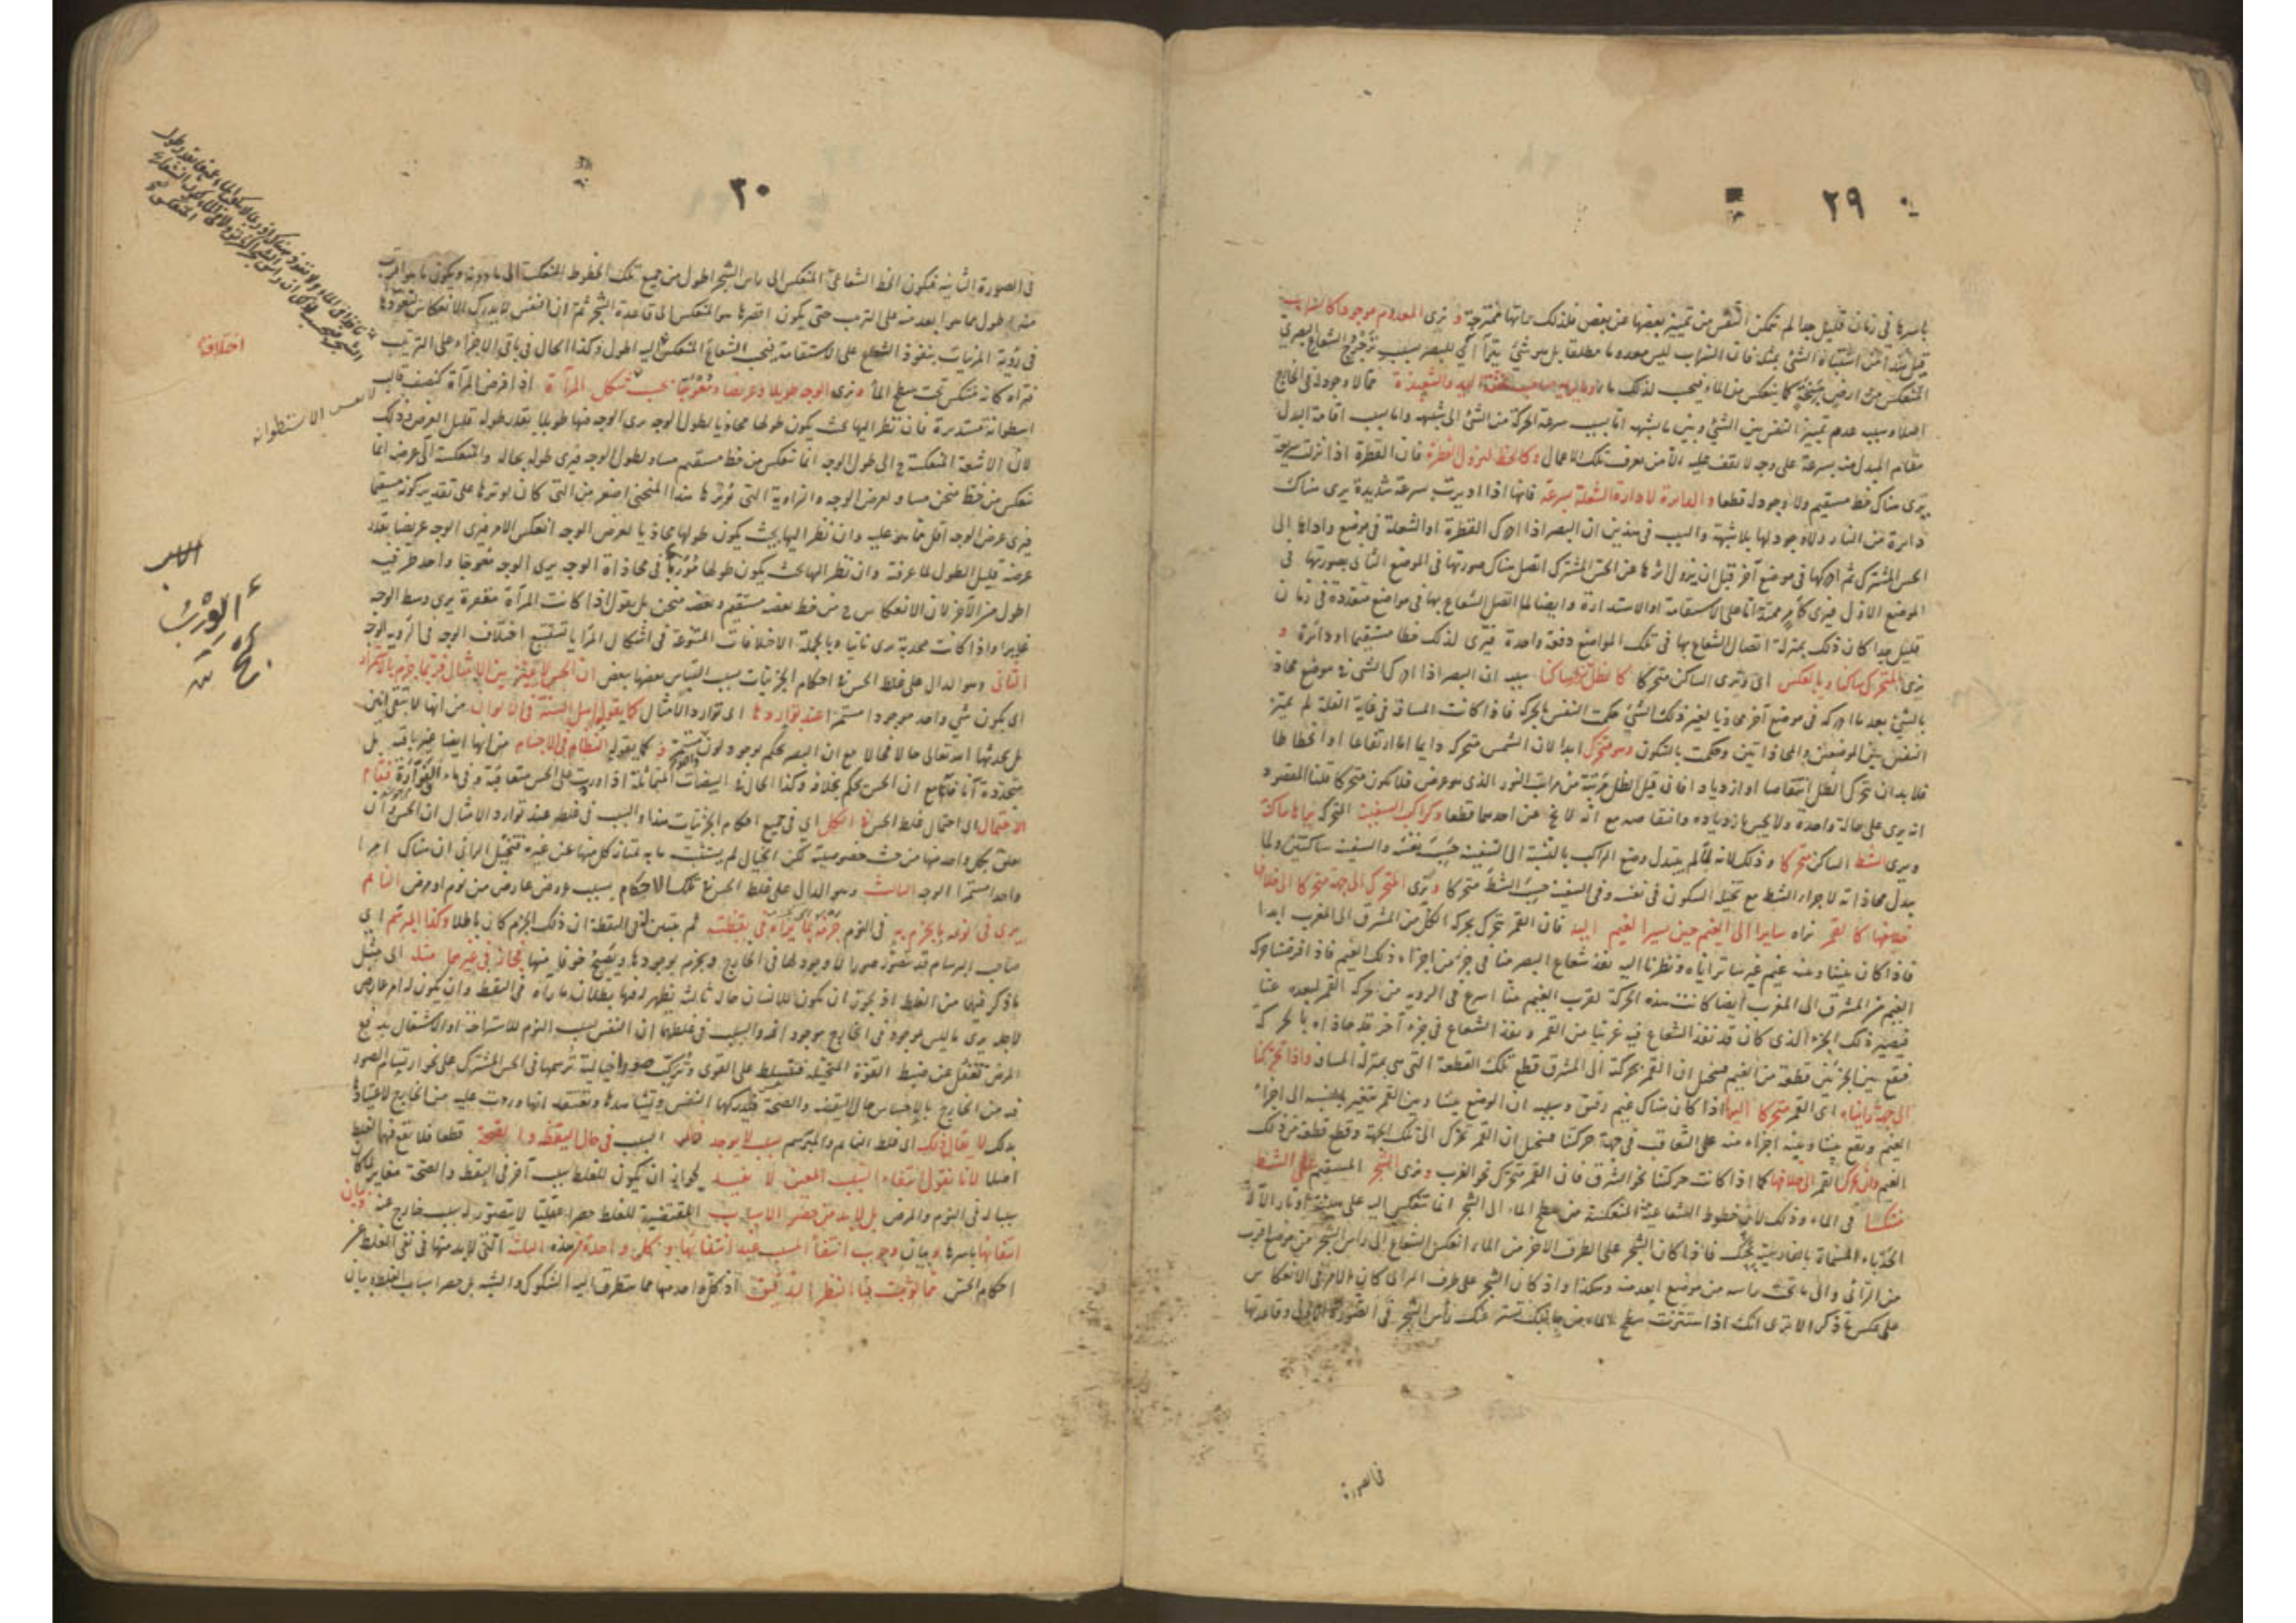 ٢٩
باسرها في زمان قليل جدا لم تتمكن النفس من تمييز بعضها عن بعض فلذلك تراها ممتزجة و نرى المعدوم موجودا كالسراب
قيل هذا من اشتباه الشيء بمثله فان السراب ليس معدوما مطلقا بل هو شيء يتراآى للبصر بسبب ترجرج الشعاع البصري
المنعكس من ارض سبخة كما ينعكس من الماء فيحسب لذلك ماء وما يريه صاحب خفة اليد والشعبذة مما لا وجود له في الخارج
اصلا وسبب عدم تمييز النفس بين الشيء وبين ما يشبهه اما بسبب سرعة الحركة من الشيء الى شبهه واما بسبب اقامة البدل
مقام المبدل منه بسرعة على وجه لا يقف عليه الا من يعرف تلك الاعمال وكالخط لنزول القطرة فان القطرة اذا نزلت سريعة
يرى هناك خط مستقيم ولا وجود له قطعا والدائرة لادارة الشعلة بسرعة فانها اذا اديرت بسرعة شديدة يرى هناك
دائرة من النار ولا وجود لها بلا شبهة والسبب في هذين ان البصر اذا ادرك القطرة او الشعلة في موضع واداها الى
الحس المشترك ثم ادركها في موضع آخر قبل ان يزول اثرها عن الحس المشترك اتصل هناك صورتها في الموضع الثاني بصورتها في
الموضع الاول فيرى كأمر ممتد اما على الاستقامة او الاستدارة وايضا لما اتصل الشعاع بها في مواضع متعددة في زمان
قليل جدا كان ذلك بمنزلة اتصال الشعاع بها في تلك المواضع دفعة واحدة فيرى لذلك خطا مستقيما او دائرة و
نرى المتحرك ساكنا وبالعكس اي ونرى الساكن متحركا كالظل نراه ساكنا سببه ان البصر اذا ادرك الشيء في موضع محاذ
بالشيء بعد ما ادركه في موضع آخر محاذيا لغير ذلك الشيء حكمت النفس بالحركة فاذا كانت المسافة في غاية القلة لم تميز
النفس بين الموضعين والمحاذاتين وحكمت بالسكون وهو متحرك ابدا لان الشمس متحركة دائما اما ارتفاعا او انحطاطا
فلا بد ان يتحرك الظل انتقاصا او ازديادا فان قيل الظل مرتبة من مراتب النور الذي هو عرض فلا يكون متحركا قلنا المقصود
انه يرى على حالة واحدة ولا يحس بازدياده وانتقاصه مع انه لا يخ عن احدهما قطعا وكراكب السفينة المتحركة يراها ساكنة
ويرى الشط الساكن متحركا وذلك لانه لما لم يتبدل وضع الراكب بالنسبة الى السفينة حسب نفسه والسفينة ساكنتين ولما
يبدل محاذاته لاجزاء الشط مع تخيله السكون في نفسه وفي السفينة حسب الشط متحركا ونرى المتحرك الى جهة متحركا الى خلاف
خلافها كالقمر نراه سايرا الى الغيم حين يسير الغيم اليه فان القمر يتحرك بحركة الكل من المشرق الى المغرب ابدا
فاذا كان بيننا وبينه غيم غير ساتر اياه ونظرنا اليه نفذ شعاع البصر منا في جزء من اجزاء ذلك الغيم فاذا فرضنا حركة
الغيم من المشرق الى المغرب ايضا كانت هذه الحركة لقرب الغيم منا اسرع في الرؤية من حركة القمر لبعده عنا
فيصير ذلك الجزء الذي كان قد نفذ الشعاع فيه غربيا من القمر ونفذ الشعاع في جزء آخر قد حاذاه بالحركة
فيقع بين الجزئين قطعة من الغيم فيتخيل ان القمر بحركته الى المشرق قطع تلك القطعة التي هي بمنزلة المسافة واذا تحركنا
الى جهة رايناه اي القمر متحركا اليها اذا كان هناك غيم رقيق وسببه ان الوضع بيننا وبين القمر متغير بالنسبة الى اجزاء
الغيم ويقع بيننا وبينه اجزاء منه على التعاقب في جهة حركتنا فيتخيل ان القمر تحرك الى تلك الجهة وقطع قطعة من ذلك
الغيم وان تحرك القمر الى خلافها كما اذا كانت حركتنا نحو الشرق فان القمر متحرك نحو الغرب ونرى الشجر المستقيم على الشط
منتكسا في الماء وذلك لان خطوط الشعاعية المنعكسة من سطح الماء الى الشجر انما تنعكس اليه على هيئة اوتار الآلة
الحدباء المسماة بالفارسية بچنگ فاذا كان الشجر على الطرف الآخر من الماء انعكس الشعاع الى رأس الشجر من موضع اقرب
من الرائي والى ما تحت راسه من موضع ابعد منه وهكذا واذ كان الشجر على طرف الرائي كان الامر في الانعكاس
على عكس ما ذكر الا ترى انك اذا استترت سطح الماء من جانبك تستر عنك رأس الشجر في الصورة الاولى وقاعدتها
في الصورة
٣٠
في الصورة الثانية فيكون الخط الشعاعي المنعكس الى راس الشجر اطول من جميع تلك الخطوط المنعكسة الى ما دونه ويكون ما هو اقرب
منه اطول مما هو ابعد منه على الترتيب حتى يكون اقصرها هو المنعكس الى قاعدة الشجر ثم ان النفس لا يدرك الانعكاس لتعودها
في رؤية المرئيات بنفوذ الشعاع على الاستقامة فيحسب الشعاع المنعكس اليه اطول وكذا الحال في باقي الاجزاء على الترتيب
فتراه كانه منتكس تحت سطح الماء ونرى الوجه طويلا وعريضا ومعوجا بحسب شكل المرآة اذا فرض المرآة كنصف قالب
اسطوانة مستديرة فان نظر اليها بحيث يكون طولها محاذيا لطول الوجه يرى الوجه فيها طويلا بقدر طوله قليل العرض وذلك
لان الاشعة المنعكسة ح الى طول الوجه انما تنعكس من خط مستقيم مساو لطول الوجه فيرى طوله بحاله والمنعكسة الى عرضه انما
تنعكس من خط منحن مساو لعرض الوجه والزاوية التي توترها هذا المنحني اصغر من التي كان يوترها على تقدير كونه مستقيما
فيرى عرض الوجه اقل مما هو عليه وان نظر اليها بحيث يكون طولها محاذيا لعرض الوجه انعكس الامر فيرى الوجه عريضا بقدر
عرضه قليل الطول لما عرفته وان نظر اليها بحيث يكون طولها مؤربا في محاذاة الوجه يرى الوجه معوجا واحد طرفيه
اطول من الآخر لان الانعكاس ح من خط بعضه مستقيم وبعضه منحن بل نقول اذا كانت المرآة مقعرة يرى وسط الوجه
غايرا واذا كانت محدبة يرى ناتيا وبالجملة الاختلافات المتنوعة في اشكال المرايا تستتبع اختلاف الوجه في الرؤية الوجه
الثاني وهو الدال على غلط الحس في احكام الجزئيات بسبب التباس بعضها ببعض ان الحس لا يميز بين الامثال فربما جزم بالاستمرار
اي بكون شيء واحد موجودا مستمرا عند تواردها اي توارد الامثال كما يقوله اهل السنة في الالوان من انها لا تبقى آنين
بل يحدثها الله تعالى حالا فحالا مع ان البصر يحكم بوجود لون مستمر و كما يقوله النظام في الاجسام من انها ايضا غير باقية بل
متجددة آنا فآنا مع ان الحس يحكم بخلافه وكذا الحال في البيضات المتماثلة اذا وردت على الحس متعاقبة و في ماء الفوارة فقام
الاحتمال اي احتمال غلط الحس في الكل اي في جميع احكام الجزئيات هذا والسبب في غلطه عند توارد الامثال ان الحس وان
تعلق بكل واحد منها من حيث خصوصيته لكن الخيال لم يستثبت ما به يمتاز كل منها عن غيره فيتخيل الرائي ان هناك امرا
واحدا مستمرا الوجه الثالث وهو الدال على غلط الحس في تلك الاحكام بسبب عروض عارض من نوم او مرض النائم
يرى في نومه ما يجزم به في النوم جزمه بما يراه في يقظته ثم يتبين له في اليقظة ان ذلك الجزم كان باطلا وكذا المبرسم اي
صاحب البرسام قد يتصور صورا لا وجود لها في الخارج ويجزم بوجودها ويصيح خوفا منها فجاز في غيرهما مثله اي مثل
ما ذكر فيهما من الغلط اذ يجوز ان يكون للانسان حالة ثالثة يظهر له فيها بطلان ما رآه في اليقظة وان يكون له امر عارض
لاجله يرى ما ليس موجودا في الخارج موجودا فيه والسبب في غلطهما ان النفس بسبب النوم للاستراحة او الاشتغال بدفع
المرض تغفل عن ضبط القوة المتخيلة فتتسلط على القوى وتركب صورا خيالية ترسمها في الحس المشترك على نحو ارتسام الصور
فيه من الخارج بالاحساس حال اليقظة والصحة فتدركها النفس وتشاهدها وتعتقد انها وردت عليه من الخارج لاعتيادها
بذلك لا يقال ذلك اي غلط النائم والمبرسم بسبب لا يوجد ذلك السبب في حال اليقظة و لا الصحة قطعا فلا يقع فيهما الغلط
اصلا لانا نقول انتفاء السبب المعين لا يفيد لجواز ان يكون للغلط سبب آخر في اليقظة والصحة مغاير لما كان
سببا له في النوم والمرض بل لا بد من حصر الاسباب المقتضية للغلط حصرا عقليا لا يتصور له سبب خارج عنه وبيان
انتفائها باسرها و بيان وجوب انتفاء المسبب عند انتفائها وكل واحدة من هذه الثلث التي لا بد منها في نفي الغلط عن
احكام الحس مما لو ثبت فبالنظر الدقيق اذ كل واحد منها مما يتطرق اليه الشكوك والشبه بل حصر اسباب الغلط وبيان
اختلافا